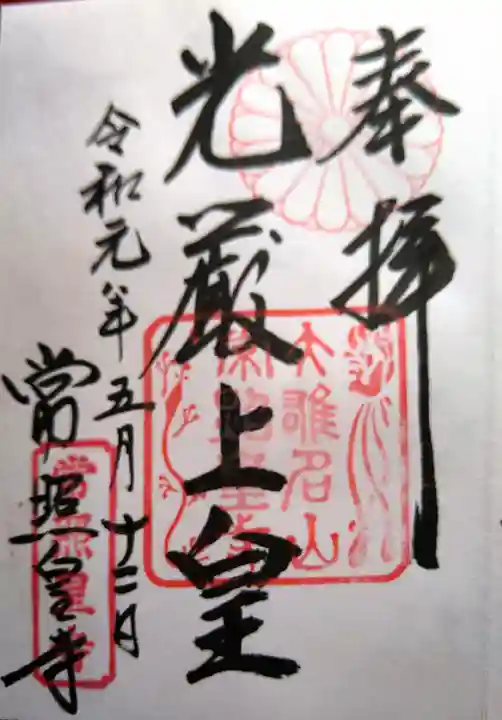 奉拝
光厳上皇
令和元年五月十二日
常照皇寺
大雄名山
常照皇寺
常照皇寺